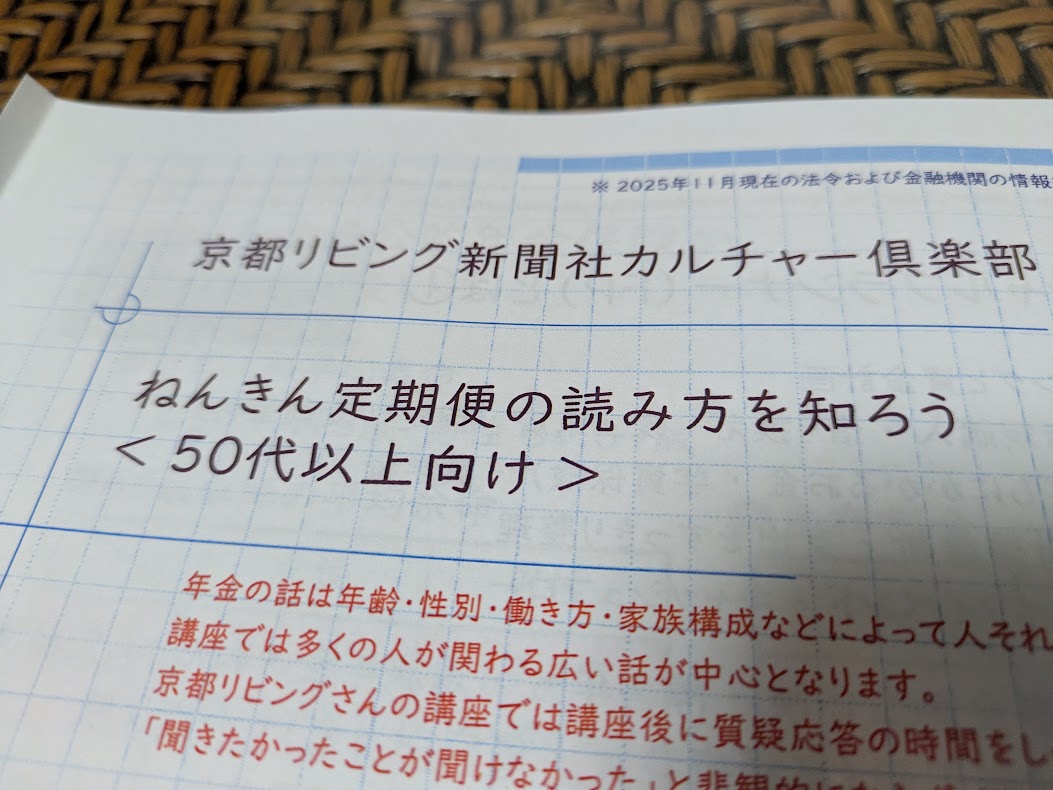 ※ 2025年11月現在の法令および金融機関の情報
京都リビング新聞社カルチャー倶楽部
ねんきん定期便の読み方を知ろう
＜50代以上向け＞
年金の話は年齢・性別・働き方・家族構成などによって人それ
講座では多くの人が関わる広い話が中心となります。
京都リビングさんの講座では講座後に質疑応答の時間をし
「聞きたかったことが聞けなかった」と悲観的に